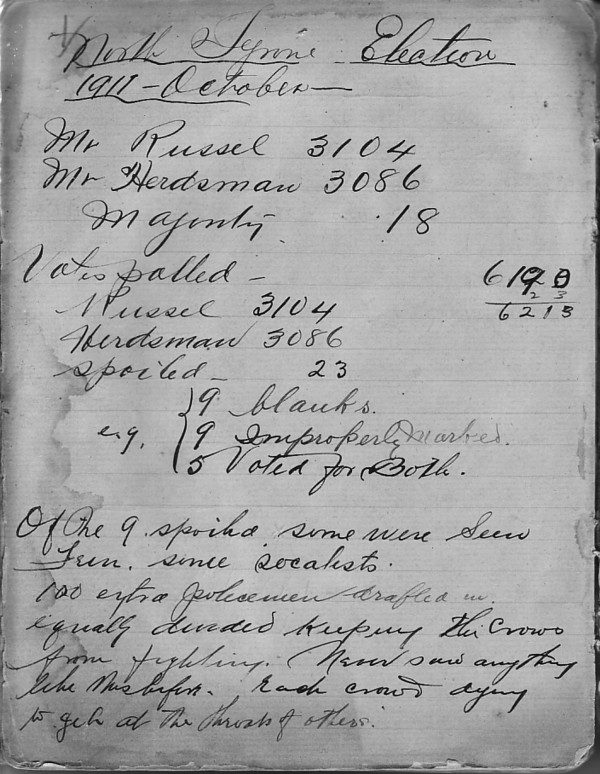 North Tyrone Election
1911 - October
Mr Russel 3104
Mr Herdsman 3086
Majority 18
Votes polled - 6190
23
6213
Russel 3104
Herdsman 3086
spoiled - 23
9 blanks.
e.g. 9 Improperly Marked.
5 Voted for Both.
Of the 9 spoiled some were Seen
Fein. some socalists.
100 extra policemen drafted in.
equally divided keeping the crows
from fighting. Never saw anything
like this before. Each crowd dying
to get at the throats of others.